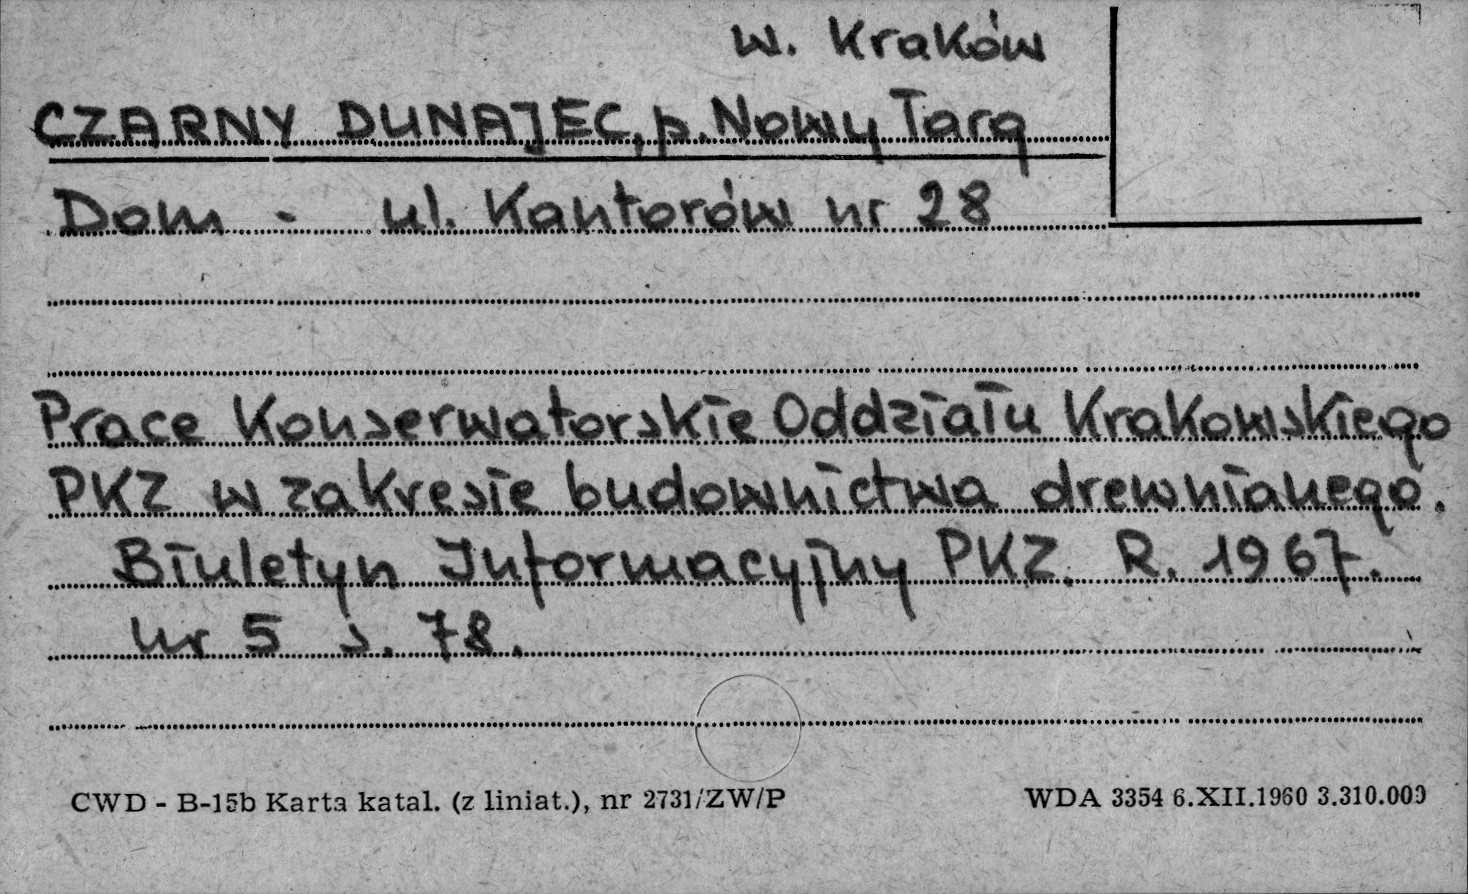 w. Kraków
CZARNY DUNAJEC, p. Nowy Targ
Dom - ul. Kantorów nr 28
Prace Konserwatorskie Oddziału Krakowskiego
PKZ w zakresie budownictwa drewnianego.
Biuletyn Informacyjny PKZ. R. 1967.
nr 5 s. 78.
CWD - B-15b Karta katal. (z liniat.), nr 2731/ZW/P
WDA 3354 6.XII.1960 3.310.000